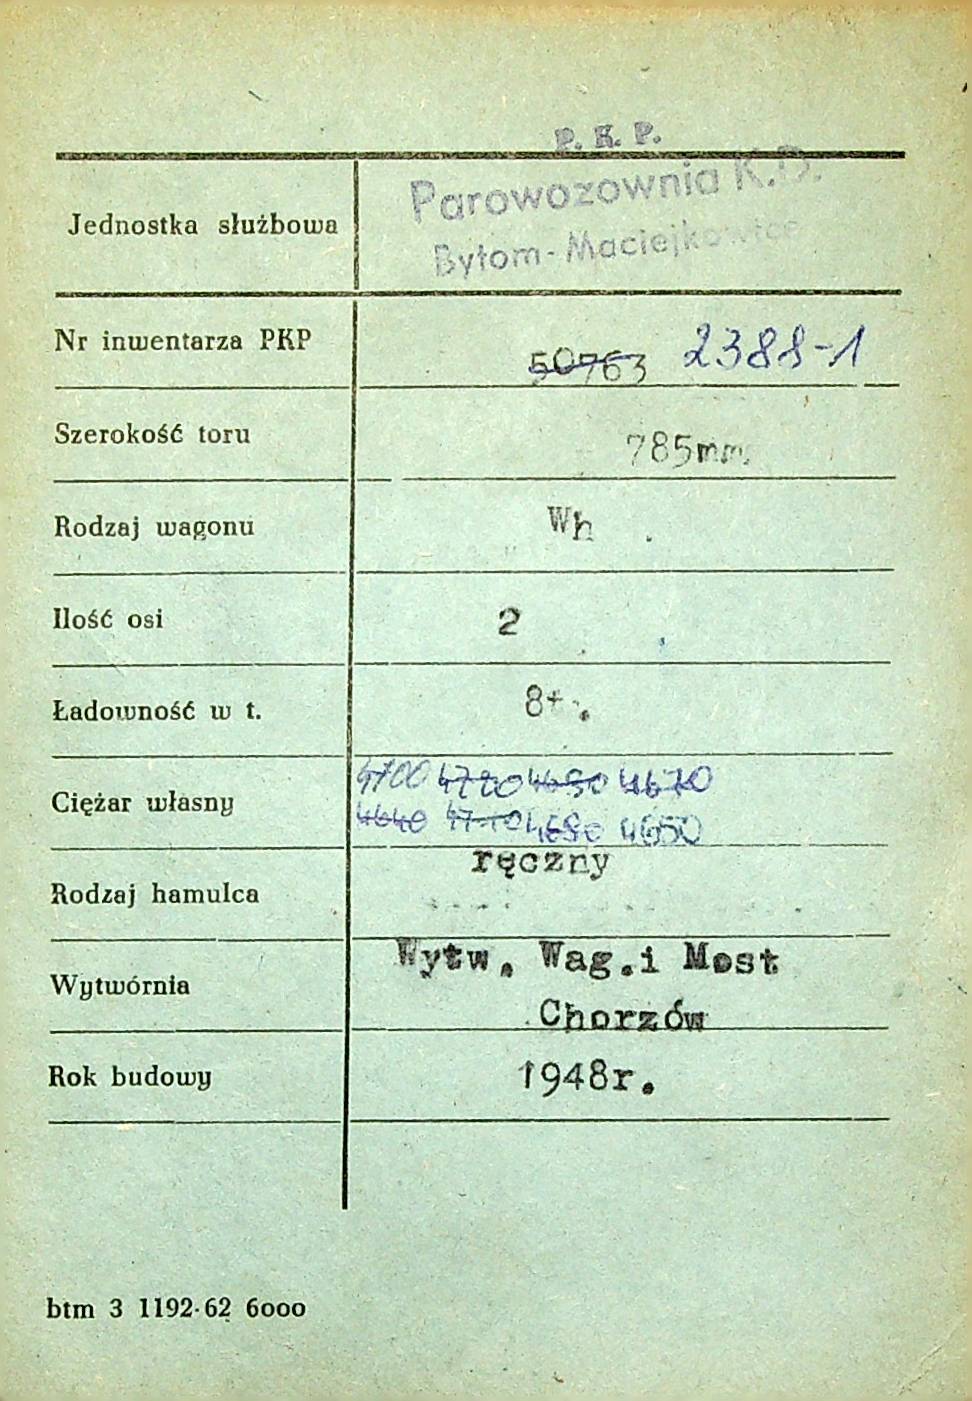 P. K. P.
Parowozownia K.D.
Jednostka służbowa
Bytom-Maciejkowice
Nr inwentarza PKP 50763 2388-1
Szerokość toru 785mm.
Rodzaj wagonu Wh
Ilość osi 2
Ładowność w t. 8t.
4700 4720 4690 4670
Ciężar własny
4640 4710 4680 4650
ręczny
Rodzaj hamulca
Wytw. Wag.i Most
Wytwórnia
Chorzów
Rok budowy 1948r.
btm 3 1192-62 6000